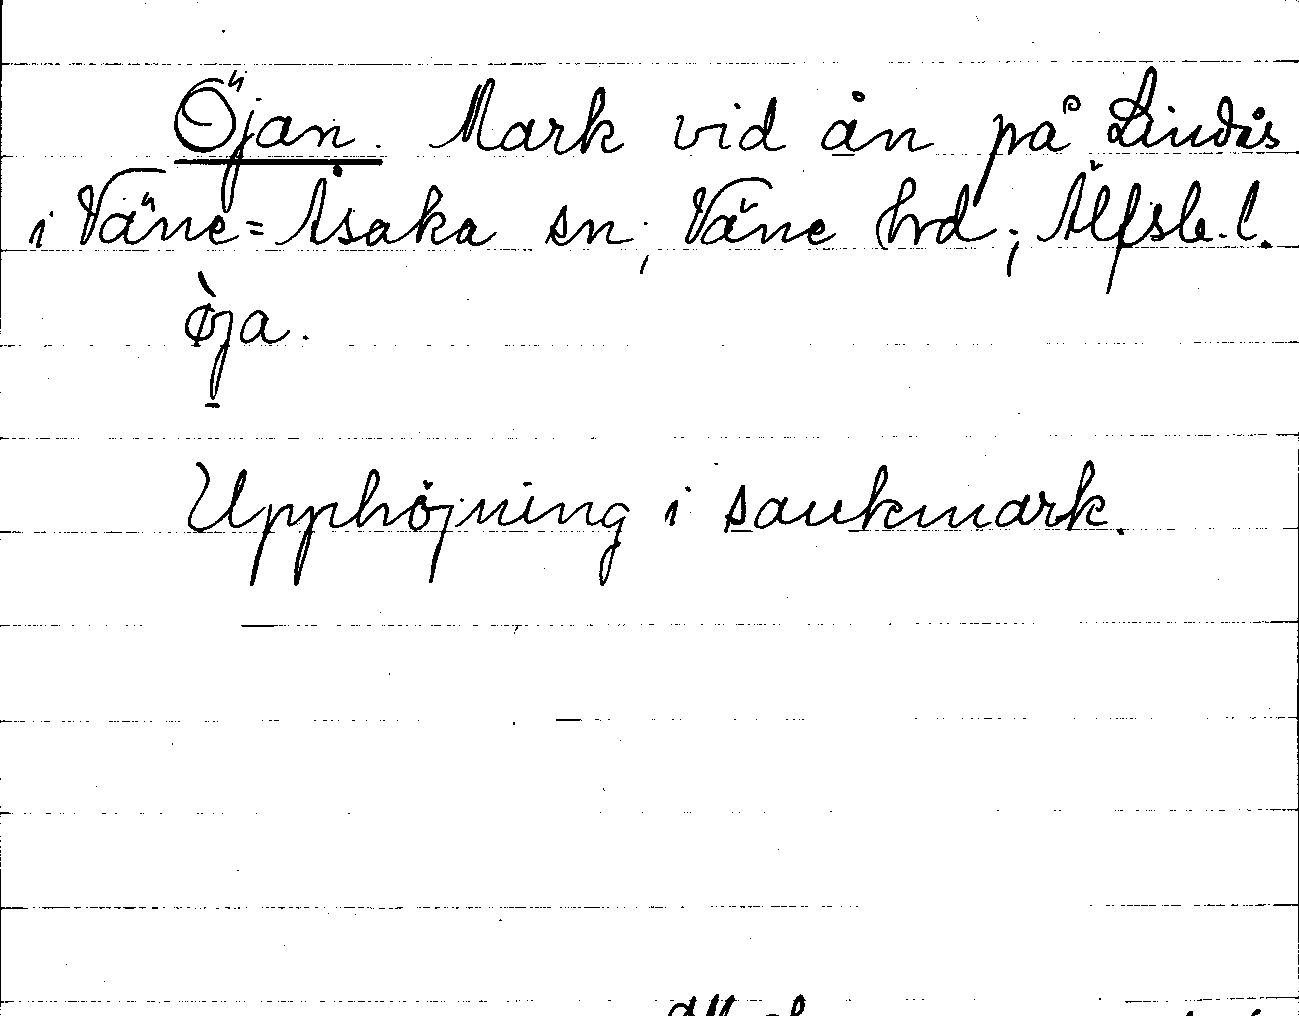 Öjan. Mark vid ån på Lindås
i Väne=Åsaka sn, Väne hrd; Älfsb. l.
ø̀ja.
Upphöjning i sankmark.